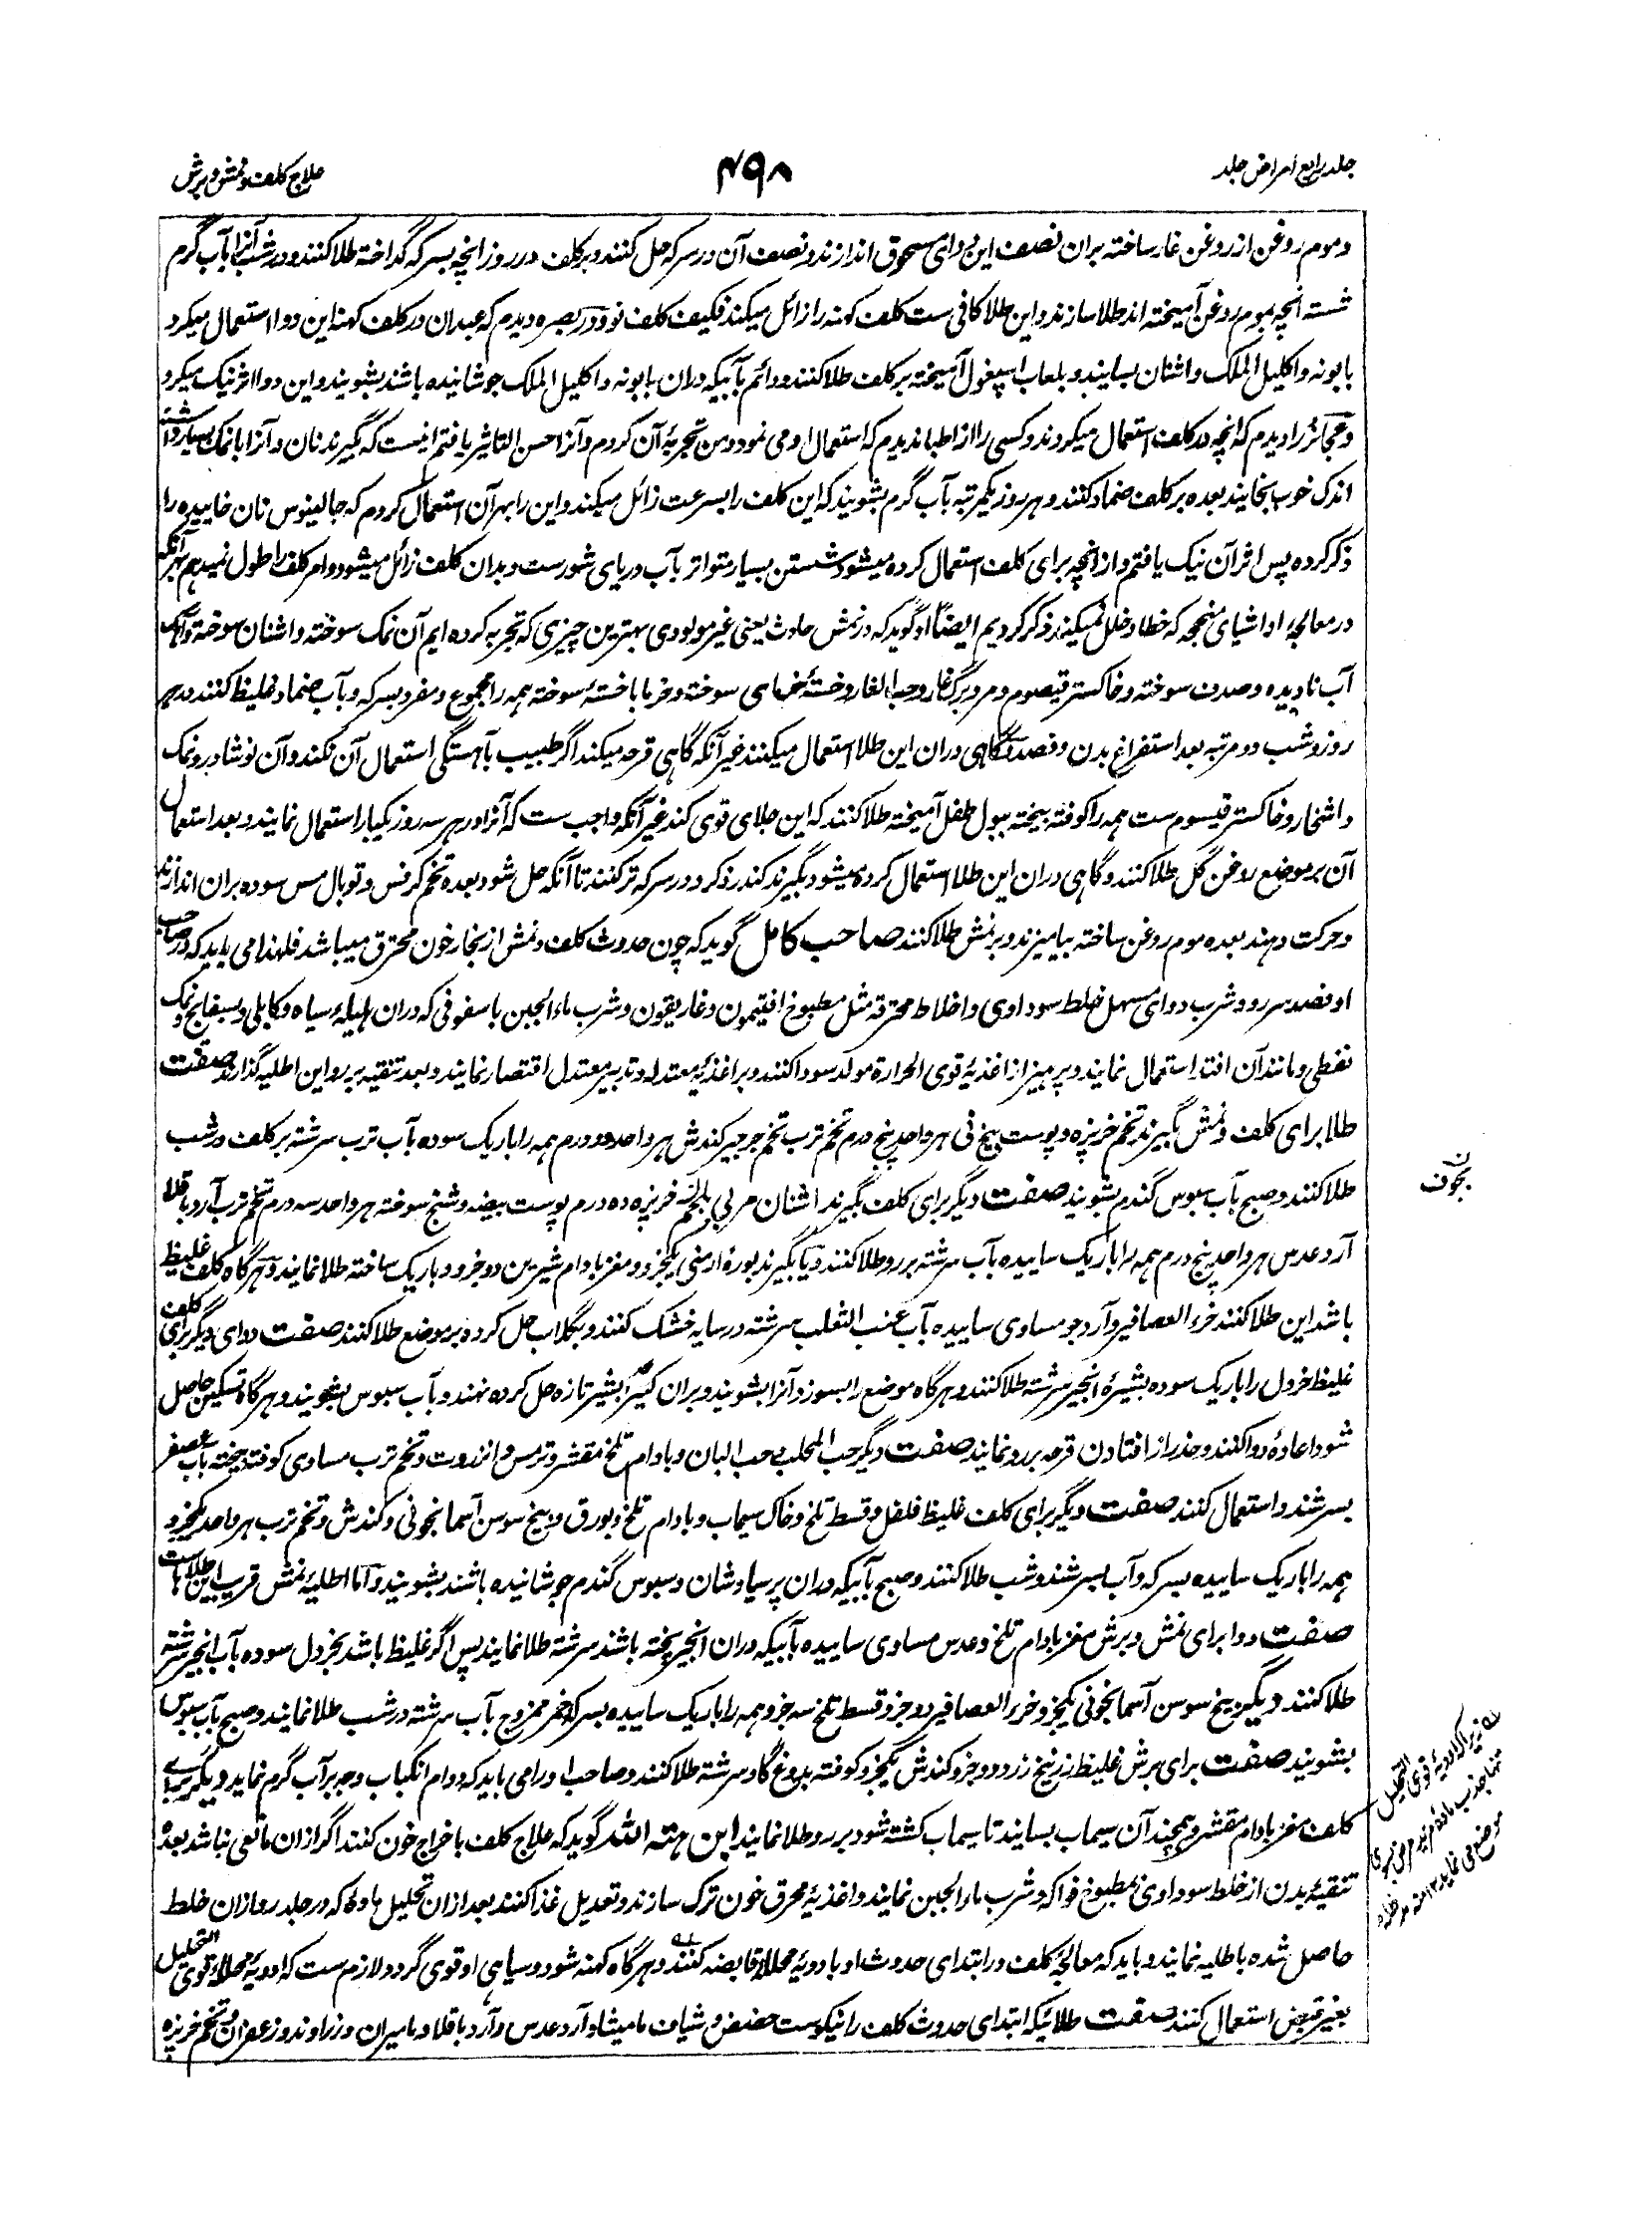 جلد رابع امراض جلد
۴۹۸
علاج کلف و نمش و برش
و موم روغن از روغن غار ساخته بران نصف این دوای مسحوق اندازند و نصف آن در سرکه حل کنند و بر کلف در روز انچه بسرکه گداخته طلا کنند و در شب آنرا بآب گرم
شسته انچه بموم روغن آمیخته اند طلا سازند و این طلا کافی ست کلف کهنه را زائل میکند فکیف کلف نو و در بصره دیدم که عبدان در کلف کهنه این دوا استعمال میکرد
بابونه و اکلیل الملک و اشنان بسایند و بلعاب اسپغول آمیخته بر کلف طلا کنند و دائم بآبیکه دران بابونه و اکلیل الملک جوشانیده باشند بشویند و این دوا اثر نیک میکرد
و عجائز را دیدم که انچه در کلف استعمال میکردند و کسی را از اطبا ندیدم که استعمال او می نمود و من تجربۀ آن کردم و آنرا احسن التاثیر یافتم اینست که بگیرند نان و آنرا با نمک بسیار و اشنه
اندک خوب بخایند بعده بر کلف ضماد کنند و هر روز یکمرتبه بآب گرم بشویند که این کلف را بسرعت زائل میکند و این را بهر آن استعمال کردم که جالینوس نان خاییده را
ذکر کرده پس اثر آن نیک یافتم و از انچه برای کلف استعمال کرده میشود شستن بسیار متواتر بآب دریای شورست و بدان کلف زائل میشود و امر کلف را طول نمیدهم بهر آنکه
در معالجۀ او اشیای منجحه که خطا و خلل نمیکند ذکر کردیم ایضاً او گوید که در نمش حادث یعنی غیر مولودی بهترین چیزی که تجربه کرده ایم آن نمک سوخته و اشنان سوخته و آهک
آب نادیده و صدف سوخته و خاکستر قیصوم و مرو برگ غار و حب الغار و خستۀ خرمای سوخته و خرما با خستۀ سوخته همه را مجموع و مفرد بسرکه و بآب ضماد غلیظ کنند در هر
روز و شب دو مرتبه بعد استفراغ بدن و فصد و گاهی دران این طلا استعمال میکنند غیر آنکه گاهی قرحه میکند اگر طبیب بآهستگی استعمال آن نکند و آن نوشادر و نمک
و اشخار و خاکستر قیسوم ست همه را کوفته بیخته ببول طفل آمیخته طلا کنند که این جلای قوی کند غیر آنکه واجب ست که آنرا در هر سه روز یکبار استعمال نمایند و بعد استعمال
آن بر موضع روغن گل طلا کنند و گاهی دران این طلا استعمال کرده میشود بگیرند کندر ذکر و در سرکه تر کنند تا آنکه حل شود بعده تخم کرفس و توبال مس سوده بران اندازند
و حرکت دهند بعده موم روغن ساخته بیامیزند و بر نمش طلا کنند صاحب کامل گوید که چون حدوث کلف و نمش از بخار خون محترق میباشد فلهذا می باید که در صاحب
او فصد سر رو و شرب دوای مسهل خلط سوداوی و اخلاط محترقه مثل مطبوخ افتیمون و غاریقون و شرب ماء الجبن با سفوفی که دران هلیلۀ سیاه و کابلی و بسفایج و نمک
نفطی و مانند آن افتد استعمال نمایند و پرهیز از اغذیۀ قوی الحرارة مولد سودا کنند و بر اغذیۀ معتدله و تدبیر معتدل اقتصار نمایند و بعد تنقیه بر رو این اطلیه گذارند صفت
طلا برای کلف و نمش بگیرند تخم خرپزه و پوست بیخ نی هر واحد پنج درم تخم ترب تخم جرجیر کندش هر واحد دو درم همه را باریک سوده بآب ترب سرشته بر کلف در شب
طلا کنند و صبح بآب سبوس گندم بشویند صفت دیگر برای کلف بگیرند اشنان مربی تخم خرپزه ده درم پوست بیضه و شنج سوخته هر واحد سه درم تخم ترب آرد باقلا
آرد عدس هر واحد پنج درم همه را باریک ساییده بآب سرشته بر رو طلا کنند و یا بگیرند بورۀ ارمنی یکجزو و مغز بادام شیرین دو جزو و باریک ساخته طلا نمایند و هرگاه کلف غلیظ
باشد این طلا کنند خرء العصافیر و آرد جو مساوی ساییده بآب عنب الثعلب سرشته در سایه خشک کنند و بگلاب حل کرده بر موضع طلا کنند صفت دوای دیگر برای کلف
غلیظ خردل را باریک سوده بشیرۀ انجیر سرشته طلا کنند و هرگاه موضع را بسوزد آنرا بشویند و بران کثیرا بشیر تازه حل کرده نهند و بآب سبوس بشویند و هرگاه تسکین حاصل
شود اعادۀ دوا کنند و حذر از افتادن قرحه بر رو نمایند صفت دیگر حب المحلب حب البان و بادام تلخ مقشر و ترمس و انزروت و تخم ترب مساوی کوفته بیخته بآب عصفر
بسرشند و استعمال کنند صفت دیگر برای کلف غلیظ فلفل و قسط تلخ و خاک سیماب و بادام تلخ و بورق و بیخ سوسن آسمانجونی و کندش و تخم ترب هر واحد یکجزو
همه را باریک ساییده بسرکه و آب بسرشند و شب طلا کنند و صبح بآبیکه دران پرسیاوشان و سبوس گندم جوشانیده باشند بشویند و اما اطلیۀ نمش قریب این طلاهاست
صفت دوا برای نمش و برش مغز بادام تلخ و عدس مساوی ساییده بآبیکه دران انجیر پخته باشند سرشته طلا نمایند پس اگر غلیظ باشد بخردل سوده بآب انجیر سرشته
طلا کنند دیگر بیخ سوسن آسمانجونی یکجزو خرء العصافیر دو جزو قسط تلخ سه جزو همه را باریک ساییده بسرکۀ خمر ممزوج بآب سرشته در شب طلا نمایند و صبح بآب سبوس
بشویند صفت برای برش غلیظ زرنیخ زرد دو جزو کندش یکجزو کوفته بدوغ گاو سرشته طلا کنند و صاحب او را می باید که دوام انکباب وجه بر آب گرم نماید دیگر برای
کلف مغز بادام مقشر و همچند آن سیماب بسایند تا سیماب کشته شود بر رو طلا نمایند ابن هبة الله گوید که علاج کلف باخراج خون کنند اگر ازان مانعی نباشد بعدۀ
تنقیۀ بدن از خلط سوداوی بمطبوخ فواکه و شرب ماء الجبن نمایند و اغذیۀ محرق خون ترک سازند و تعدیل غذا کنند بعد ازان تحلیل ماده که در جلد رو ازان خلط
حاصل شده باطلیه نمایند و باید که معالجۀ کلف در ابتدای حدوث او بادویۀ محلله قابضه کنند و هرگاه کهنه شود و سیاهی او قوی گردد لازم ست که ادویۀ محللۀ قوی التحلیل
بغیر قبض استعمال کنند صفت طلائیکه ابتدای حدوث کلف را نیکوست حضض و شیاف مامیثا و آرد عدس و آرد باقلا و مامیران و زراوند و زعفران و تخم خرپزه
زیرا که ادویۀ قوی التحلیل